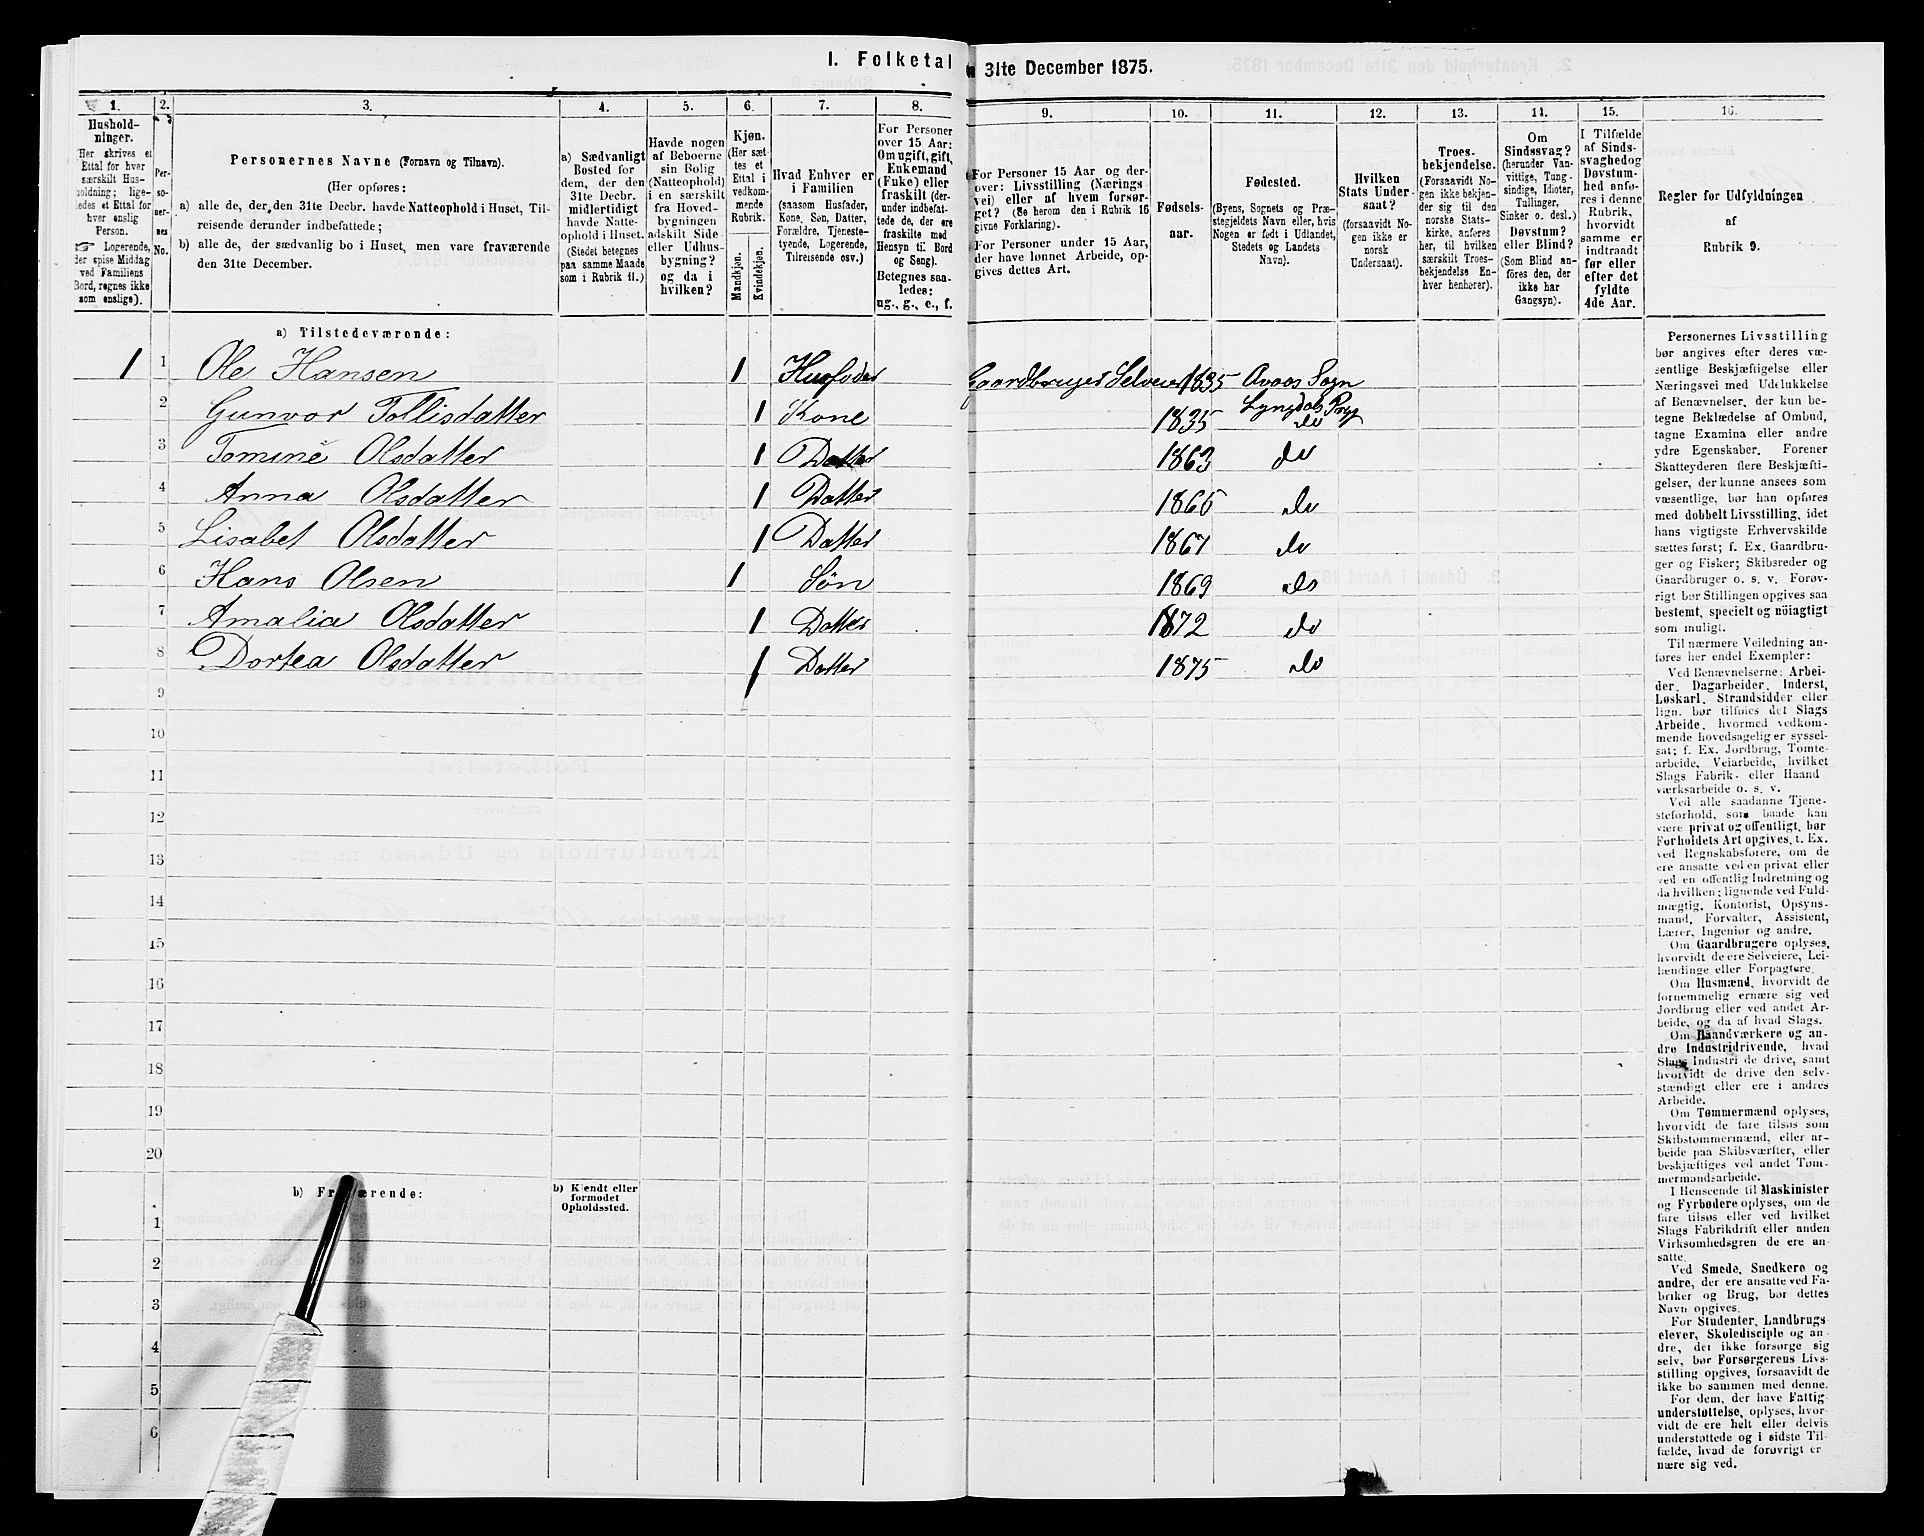 I. Folketal 31te December 1875.
1. 2. 3. 4. 5. 6. 7. 8. 9. 10. 11. 12. 13. 14. 15. 16.
Hushold-
ninger.
Her skrives et
Ettal for hver
særskilt Hus-
holdning; lige-
ledes et Ettal for
hver enslig
Person.
☞ Logerende,
der spise Middag
ved Familiens
Bord, regnes ikke
som enslige).
Per-
so-
ner-
nes
No.
Personernes Navne (Fornavn og Tilnavn).
(Her opføres:
a) alle de, der den 31te Decbr. havde Natteophold i Huset, Til-
reisende derunder indbefattede;
b) alle de, der sædvanlig bo i Huset, men vare fraværende
den 31te December.
a) Sædvanligt
Bosted for
dem, der den
31te Decbr.
midlertidigt
havde Natte-
ophold i Huset.
(Stedet betegnes
paa samme Maade
som i Rubrik 11.)
Havde nogen
af Beboerne
sin Bolig
(Natteophold)
i en særskilt
fra Hoved-
bygningen
adskilt Side-
eller Udhus-
bygning?
og da i
hvilken?
Kjøn.
(Her sæt-
tes et
Ettal i
vedkom-
mende
Rubrik.
Mandkjøn.
Kvindekjøn.
Hvad Enhver er
i Familien
(saasom Husfader,
Kone, Søn, Datter,
Forældre, Tjeneste-
tyende, Logerende,
Tilreisende osv.)
For Personer
over 15 Aar:
Om ugift, gift,
Enkemand
(Enke) eller
fraskilt (der-
under indbefat-
tede de, der ere
fraskilte med
Hensyn til Bord
og Seng).
Betegnes saa-
ledes:
ug., g., e., f.
For Personer 15 Aar og der-
over: Livsstilling (Nærings-
vei) eller af hvem forsør-
get? (Se herom den i Rubrik 16
givne Forklaring).
For Personer under 15 Aar,
der have lønnet Arbeide, op-
gives dettes Art.
Fødsels-
aar.
Fødested.
(Byens, Sognets og Præ-
stegjeldets Navn eller, hvis
Nogen er født i Udlandet,
Stedets og Landets
Navn).
Hvilken
Stats Under-
saat?
(forsaavidt No-
gen ikke er
norsk
Undersaat).
Troes-
bekjendelse.
(Forsaavidt No-
gen ikke bekjen-
der sig til den
norske Stats-
kirke, anføres
her, til hvilken
særskilt Troes-
bekjendelse En-
hver henhører).
Om
Sindssvag?
(herunder Van-
vittige, Tung-
sindige, Idioter,
Tullinger,
Sinker o. desl.)
Døvstum?
eller Blind?
(Som Blind an-
føres den, der
ikke har
Gangsyn).
I Tilfælde
af Sinds-
svaghed og
Døvstum-
hed anfø-
res i denne
Rubrik,
hvorvidt
samme er
indtraadt
før eller
efter det
fyldte
4de Aar.
Regler for Udfyldningen
af
Rubrik 9.
a) Tilstedeværende:
1 1 Ole Hansen 1 Husfader Gaardbruger Selveier 1835 Avaas Sogn
Lyngdals Præg
2 Gunvor Tollisdatter 1 Kone 1835 do
3 Tomine Olsdatter 1 Datter 1863 do
4 Anna Olsdatter 1 Datter 1865 do
5 Lisabet Olsdatter 1 Datter 1867 do
6 Hans Olsen 1 Søn 1869 do
7 Amalia Olsdatter 1 Datter 1872 do
8 Dortea Olsdatter 1 Datter 1875 do
9
10
11
12
13
14
15
16
17
18
19
20
b) Fraværende: b) Kjendt eller
formodet
Opholdssted.
1
2
3
4
5
6
Personernes Livsstilling
bør angives efter deres væ-
sentlige Beskjæftigelse eller
Næringsvei med Udelukkelse
af Benævnelser, der kun be-
tegne Beklædelse af Ombud,
tagne Examina eller andre
ydre Egenskaber. Forener
Skatteyderen flere Beskjæfti-
gelser, der kunne ansees som
væsentlige, bør han opføres
med dobbelt Livsstilling, idet
hans vigtigste Erhvervskilde
sættes først; f. Ex. Gaardbru-
ger og Fisker; Skibsreder og
Gaardbruger o. s. v. Forøv-
rigt bør Stillingen opgives saa
bestemt, specielt og nöiagtigt
som muligt.
Til nærmere Veiledning an-
føres her endel Exempler:
Ved Benævnelserne: Arbei-
der, Dagarbeider, Inderst,
Løskarl, Strandsidder eller
lign. bør tilføies det Slags
Arbeide, hvormed vedkom-
mende hovedsagelig er syssel-
sat; f. Ex. Jordbrug, Tomte-
arbeide, Veiarbeide, hvilket
Slags Fabrik- eller Haand
værksarbeide o. s. v.
Ved alle saadanne Tjene-
steforhold, som baade kan
være privat og offentligt, bør
Forholdets Art opgives, t. Ex.
ved Regnskabsførere, om de
ere ansatte ved en privat eller
ved en offentlig Indretning og
da hvilken; lignende ved Fuld-
mægtig, Kontorist, Opsyns-
mand, Forvalter, Assistent,
Lærer, Ingeniør og andre.
Om Gaardbrugere oplyses,
hvorvidt de ere Selveiere, Lei-
lændinge eller Forpagtere.
Om Husmænd, hvorvidt de
fornemmelig ernære sig ved
Jordbrug eller ved andet Ar-
beide, og da af hvad Slags.
Om Haandværkere og an-
dre Industridrivende, hvad
Slags Industri de drive, samt
hvorvidt de drive den selv-
stændigt eller ere i andres
Arbeide.
Om Tømmermænd oplyses,
hvorvidt de fare tilsøs som
Skibstømmermænd, eller ar-
beide paa Skibsværfter, eller
beskjæftiges ved andet Tøm-
mermandsarbeide.
I Henseende til Maskinister
og Fyrbødere oplyses, om de
fare tilsøs eller ved hvilket
Slags Fabrikdrift eller anden
Virksomhedsgren de ere an-
satte.
Ved Smede, Snedkere og
andre, der ere ansatte ved Fa-
briker og Brug, bør dettes
Navn opgives.
For Studenter, Landbrugs-
elever, Skoledisciple og an-
dre, der ikke forsørge sig
selv, bør Forsørgerens Livs-
stilling opgives, forsaavidt de
ikke bo sammen med denne.
For dem, der have Fattig-
understøttelse, oplyses, hvor-
vidt de ere helt eller delvis
understøttede og i sidste Til-
fælde, hvad de forøvrigt er
nære sig ved.